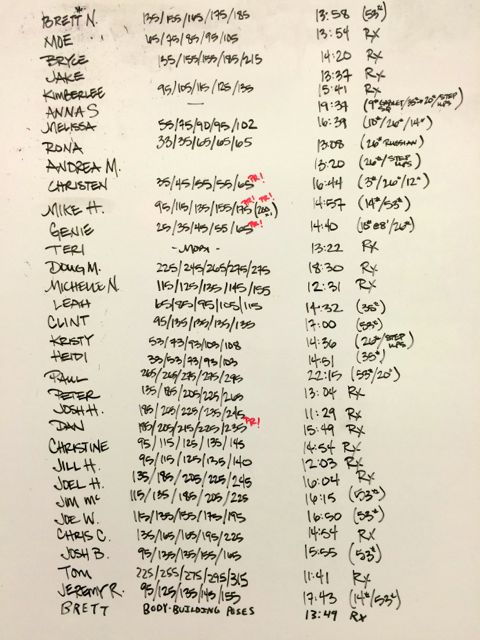 BRETT N. 135/155/165/175/185 13:58 (53#)
MOE 65/75/85/95/105 13:54 RX
BRYCE 135/155/155/185/215 14:20 RX
JAKE 13:37 RX
KIMBERLEE 95/105/115/125/135 15:41 RX
ANNA S — 19:37 (9# GOBLET/35#20#/STEP UPS)
MELISSA 55/75/90/95/102 16:39 (10#/26#/14")
RONA 33/35/65/65/65 13:08 (26# RUSSIAN)
ANDREA M. 13:20 (26#/STEP UPS)
CHRISTEN 35/45/55/55/65 PR! 16:44 (3#/26#/12")
MIKE H. 95/115/135/155/175 PR! (200#) PR! 14:57 (14#/53#)
GENIE 25/35/45/55/65 PR! 14:40 (10# 08'/26#)
TERI - MOBI - 13:22 RX
DOUG M. 225/245/265/275/275 18:30 RX
MICHELLE N. 115/125/135/145/155 12:31 RX
LEAH 65/85/95/105/115 14:32 (35#)
CLINT 95/135/135/135/135 17:00 (53#)
KRISTY 53/73/93/103/108 14:36 (26#/STEP UPS)
HEIDI 33/53/73/93/103 14:51 (35#)
PAUL 265/265/275/275/295 22:15 (53#/20#)
PETER 135/185/205/225/265 13:04 RX
JOSH H. 185/205/225/235/245 11:29 RX
DAN 185/205/215/225/235 PR! 15:49 RX
CHRISTINE 95/115/125/135/145 14:54 RX
JILL H. 95/115/125/135/140 12:03 RX
JOEL H. 135/185/205/225/245 16:04 RX
JIM MC 115/135/185/205/225 16:15 (53#)
JOE W. 115/135/155/175/195 16:50 (53#)
CHRIS C. 135/165/165/195/225 14:54 RX
JOSH B. 95/135/135/155/165 15:55 (53#)
TOM 225/255/275/295/315 11:41 RX
JEREMY R. 95/125/135/145/155 17:43 (14#/53#)
BRETT BODY-BUILDING POSES 13:49 RX